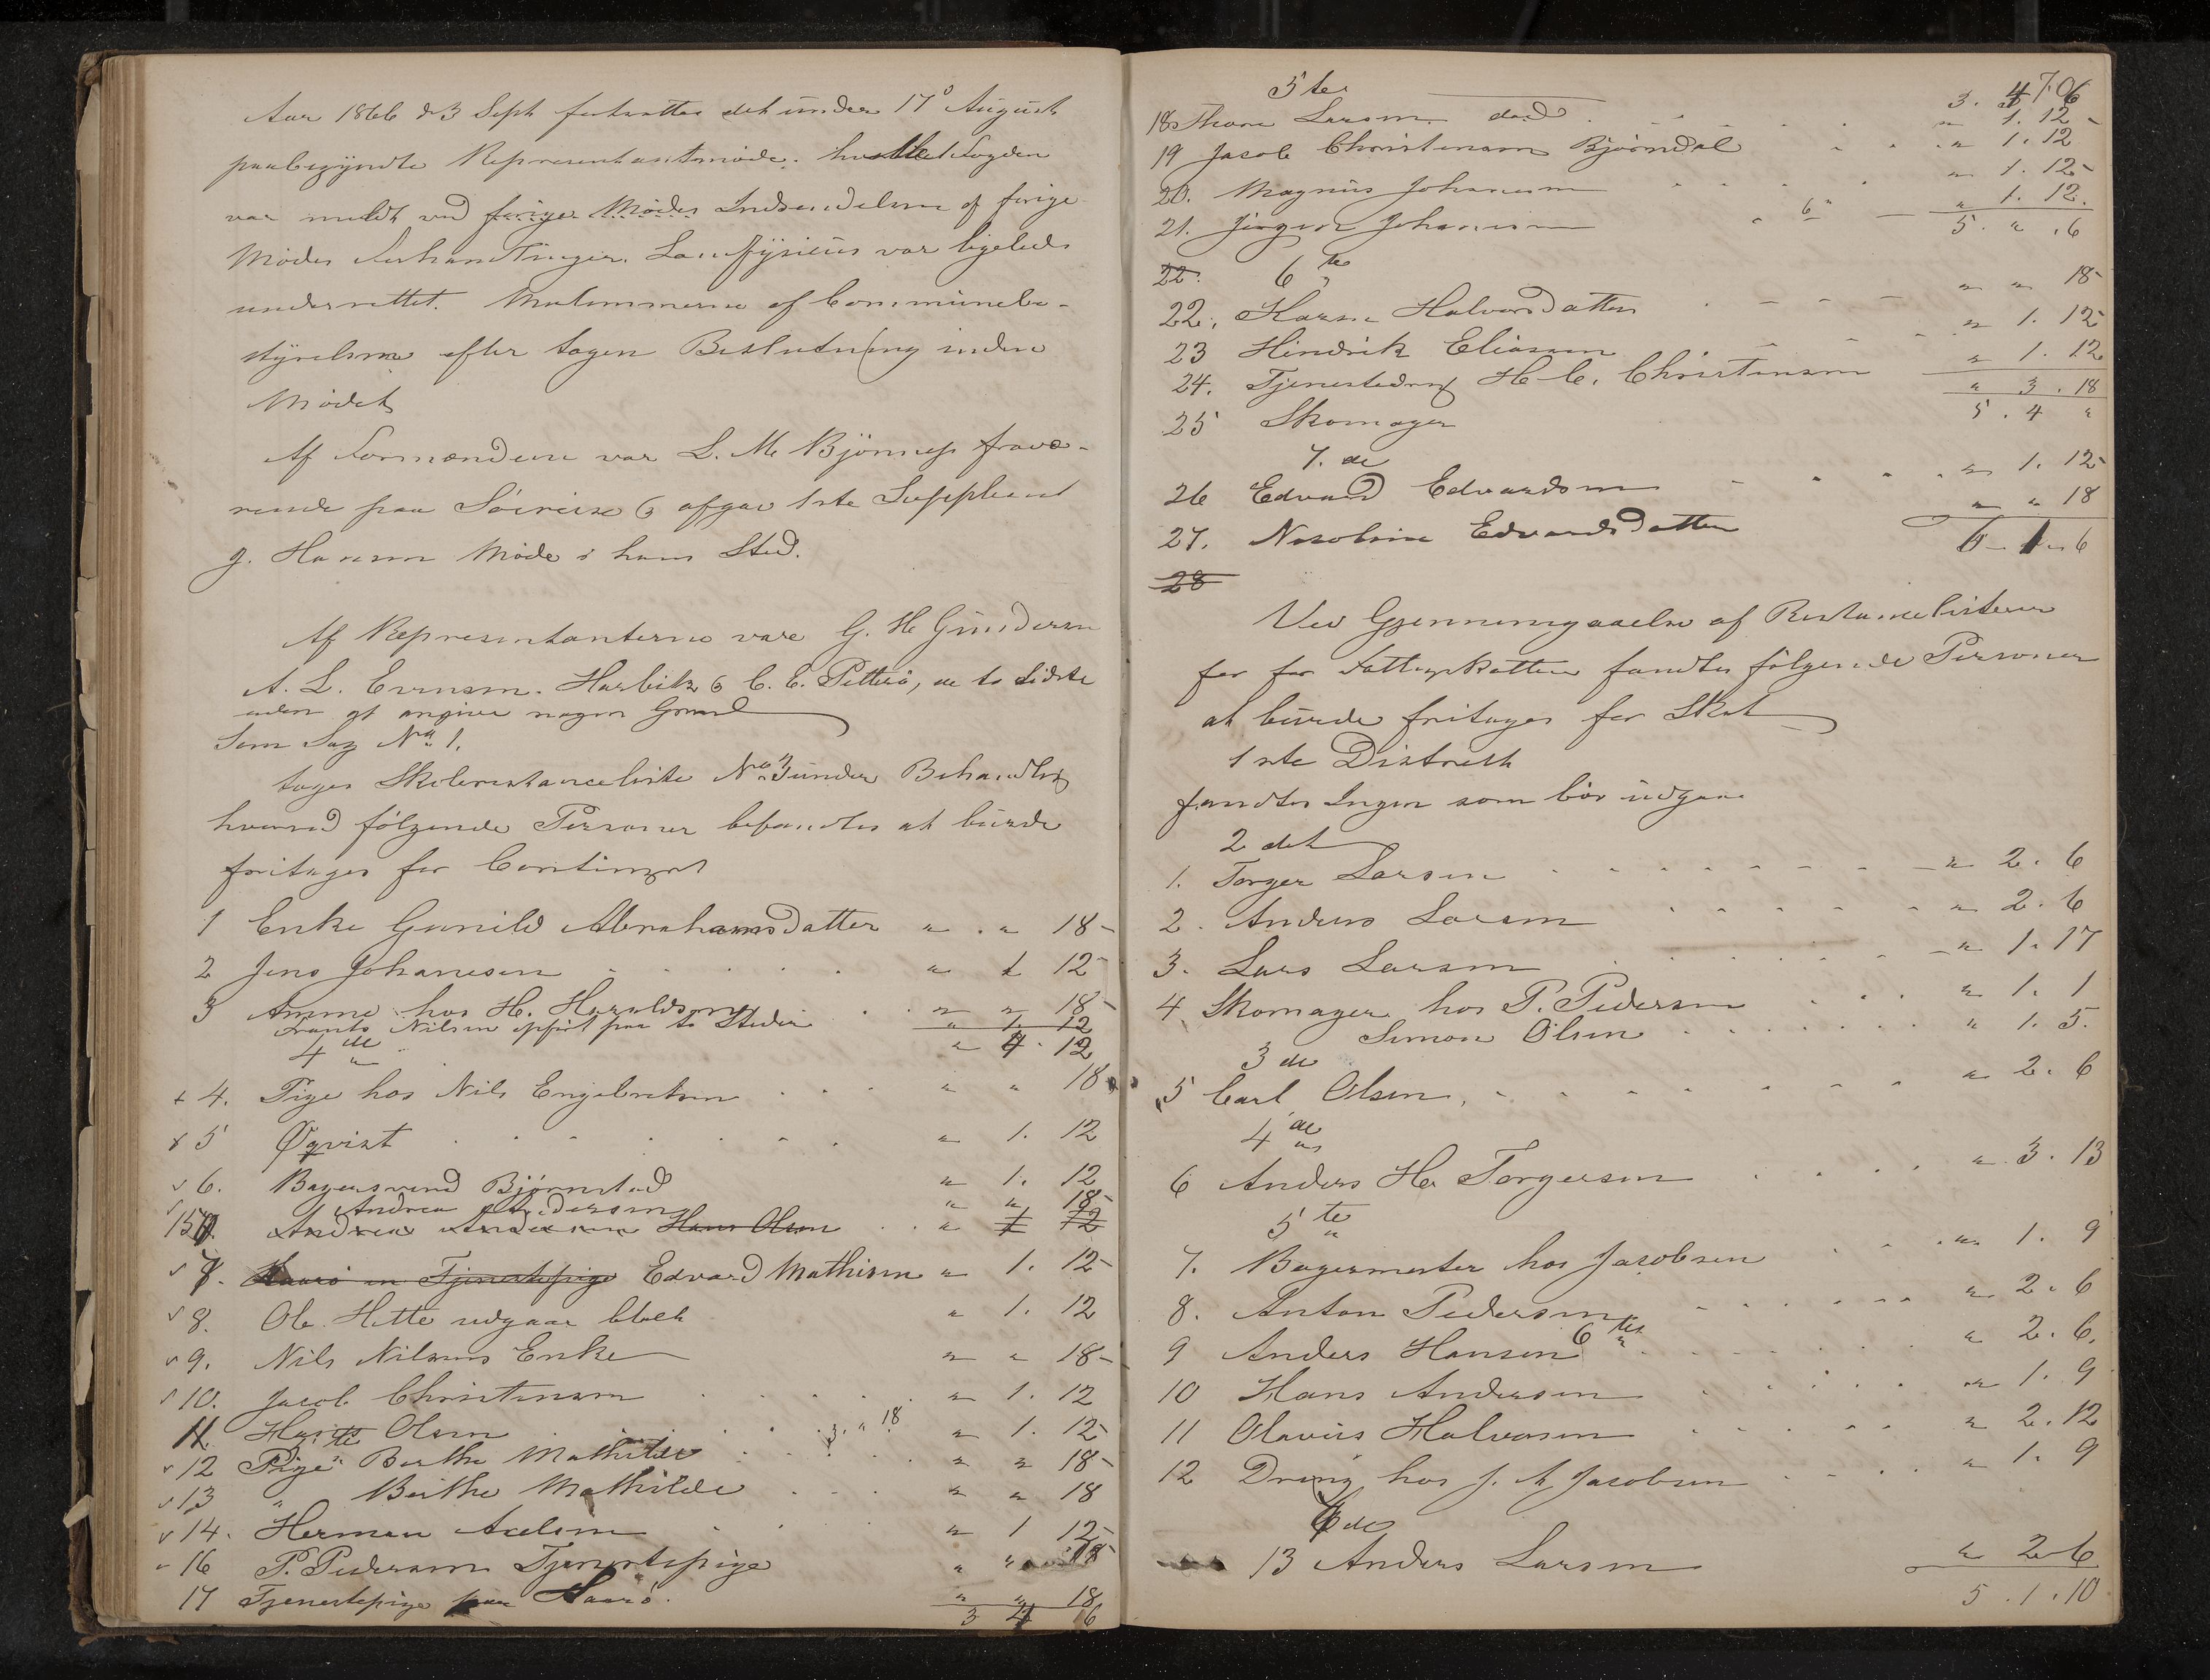 Aar 1866 d 3 Sept fortsattes det under 17de August
paabegyndte Repræsentantmøde. Fogden
var meldt ved forige Mødes Indsendelsen af forige
Mødes Forhandlinger. Landfysicus var ligeleds
underrettet. af Communebe-
styrelsen efter tagen Beslutning inden
Mødet
Af Formændene var L. M. Bjønnes fravæ-
rende paa Søireise & afgav 1ste Supplient
J. Hansen Møde i hans Sted.
Af Repræsentanterne vare G. H. Gundersen
A. L. Evensen. Harbitz & C. E. Petterø, de to Sidste
uden at angive nogen Grund
Som Sag No 1.
toges Skolerestanceliste No 3 under Behandling
hvorved følgende Personer befandtes at burde
fritages for Contingent
1 Enke Gunild Abrahamsdatter " . " 18-
2 Jens Johanesen " 1 12-
3 Amme hos H. Haraldsen " " 18-
Frants Nilsen opført paa to Steder " 1. 12
4de " 4. 12
+ 4. Pige hos Nils Engebretsen " " 18
x 5 Øqvist " 1. 12
v 6. Bagersvend Bjørnstad " 1. 12
Andrea Andersen " " 18-
15 Andrea Andersen Hans Olsen " 1 12
v 7. Haarø en Tjenestepige Edvard Mathisen " 1. 12-
v 8. Ole Hette udgaar " 1. 12
v 9. Nils Nilsens Enke " " 18-
v 10. Jacob Christensen " 1. 12
11. Hans Olsen 3. " 18 " 1. 12-
v 12 Pige Berthe Mathilde " " 18-
v 13 " Berthe Mathilde " " 18
v 14. Herman Axelsen " 1 12-
16 P. Pedersen Tjenestepige " " 18
17 Tjenestepige paa Haarø. " " 18
3 4 6
5te 3. 4 6
18 Thore Larsen død " 1. 12-
19 Jacob Christensen Bjørndal " 1. 12
20. Magnus Johanesen " 1. 12-
21. Jørgen Johanesen " 1. 12.
5. " . 6
22. 6te
22. Karen Halvorsdatter " " 18-
23 Hindrik Eliasen " 1. 12
24. Tjenestedreng H. C. Christensen " 1. 12
25 Skomager " 3. 18
5. 4 "
7.de
26 Edvard Edvardsen " 1. 12-
27. Edvardsdatter " " 18
6 - 1 - 6
28
Ved Gjennemgaaelse af Restancelisterne
for for Fattigskatten fandtes følgende Personer
at burde fritages for Skat
1ste Distrikt
fandtes Ingen som bør udgaae
2det
1. Torger Larsen " 2. 6
2. Anders Larsen " 2. 6
3. Lars Larsen " 1. 17
4 Skomager hos P. Pedersen " 1. 1
Simon Olsen " 1. 5.
3de
5 Carl Olsen " 2. 6
4de
6 Anders H. Torgersen " 3. 13
5te
7. Bagermester hos Jacobsen " 1. 9
8. Anton Pedersen " 2. 6
9 Anders Hansen 6te " 2. 6.
10 Hans Andersen " 1. 9
11 Olavus Halvorsen " 2. 12
12 Dreng hos J. A. Jacobsen " 1. 9
7de
13 Anders Larsen " 2. 6
5 . 1 . 10